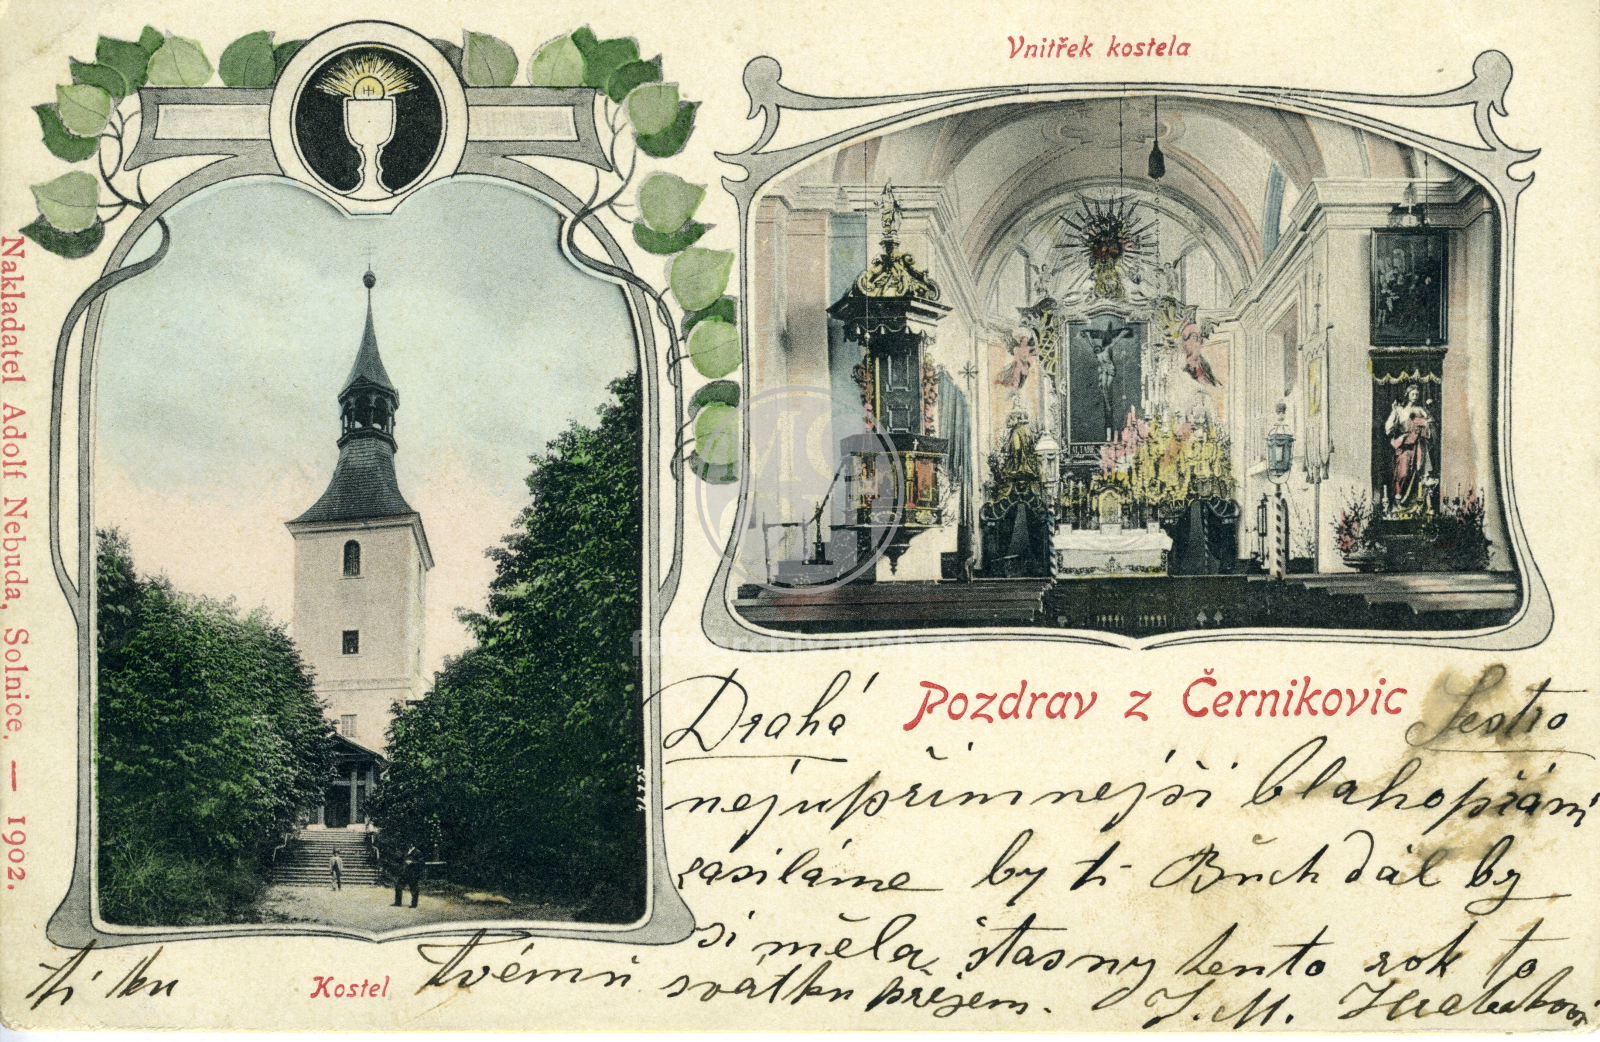 Vnitřek kostela
Nakladatel Adolf Nebuda, Solnice. — 1902.
Pozdrav z Černikovic
Drahá Sestro
nejupřimnejši blahopřáni
zasiláme by ti Bůh dál by
si měla štasny tento rok to
ti ku tvému svátku přejem. J. M.
Kostel